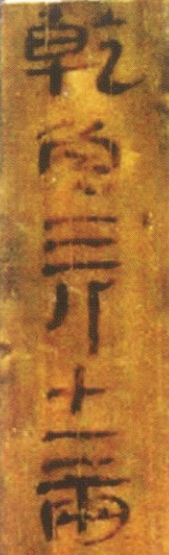 乾三斤十二兩